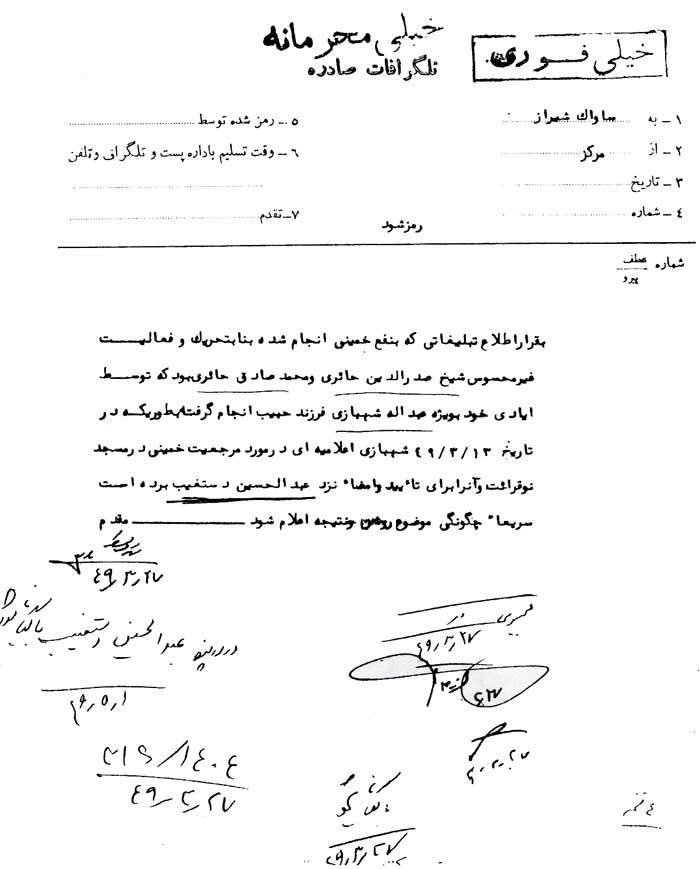 خیلی محرمانه
خیلی فوری
تلگرافات صادره
۱ـ به ساواك شیراز
۲ـ از مرکز
۳ـ تاریخ
٤ـ شماره
۵ـ رمز شده توسط
۶ـ وقت تسلیم باداره پست و تلگراف و تلفن
۷ـ تقدم
رمزشود
شماره عطف
پیرو
بقراراطلاع تبلیغاتی که بنفع خمینی انجام شده بنابتحریك و فعالیت
غیرمحسوس شیخ صدرالدین حائری ومحمد صادق حائری بود که توسط
ایادی خود بویژه عبداله شهبازی فرزند حبیب انجام گرفته بطوریکه در
تاریخ ٤٩/٣/١٣ شهبازی اعلامیه ای درمورد مرجعیت خمینی درمسجد
نوقرائت وآنرابرای تائید وامضاء نزد عبدالحسین دستغیب برده است
سریعا" چگونگی موضوع روشن ونتیجه اعلام شود مقدم
٤٩٫٣٫٢٧
در پرونده عبدالحسین دستغیب بایگانی شود
٤٩٫٣٫٢٧
٣١٦/١٤٠٤
٤٩٫٣٫٢٧
بایگانی شود
٤٩٫٣٫٢٧